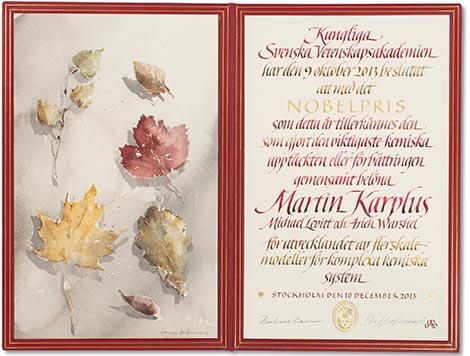 Kungliga
Svenska Vetenskapsakademien
har den 9 oktober 2013 beslutat
att med det
NOBELPRIS
som detta år tillerkännes den
som gjort den viktigaste kemiska
upptäckten eller förbättringen
gemensamt belöna
Martin Karplus
Michael Levitt och Arieh Warshel
för utvecklandet av flerskale-
modeller för komplexa kemiska
system
STOCKHOLM DEN 10 DECEMBER 2013